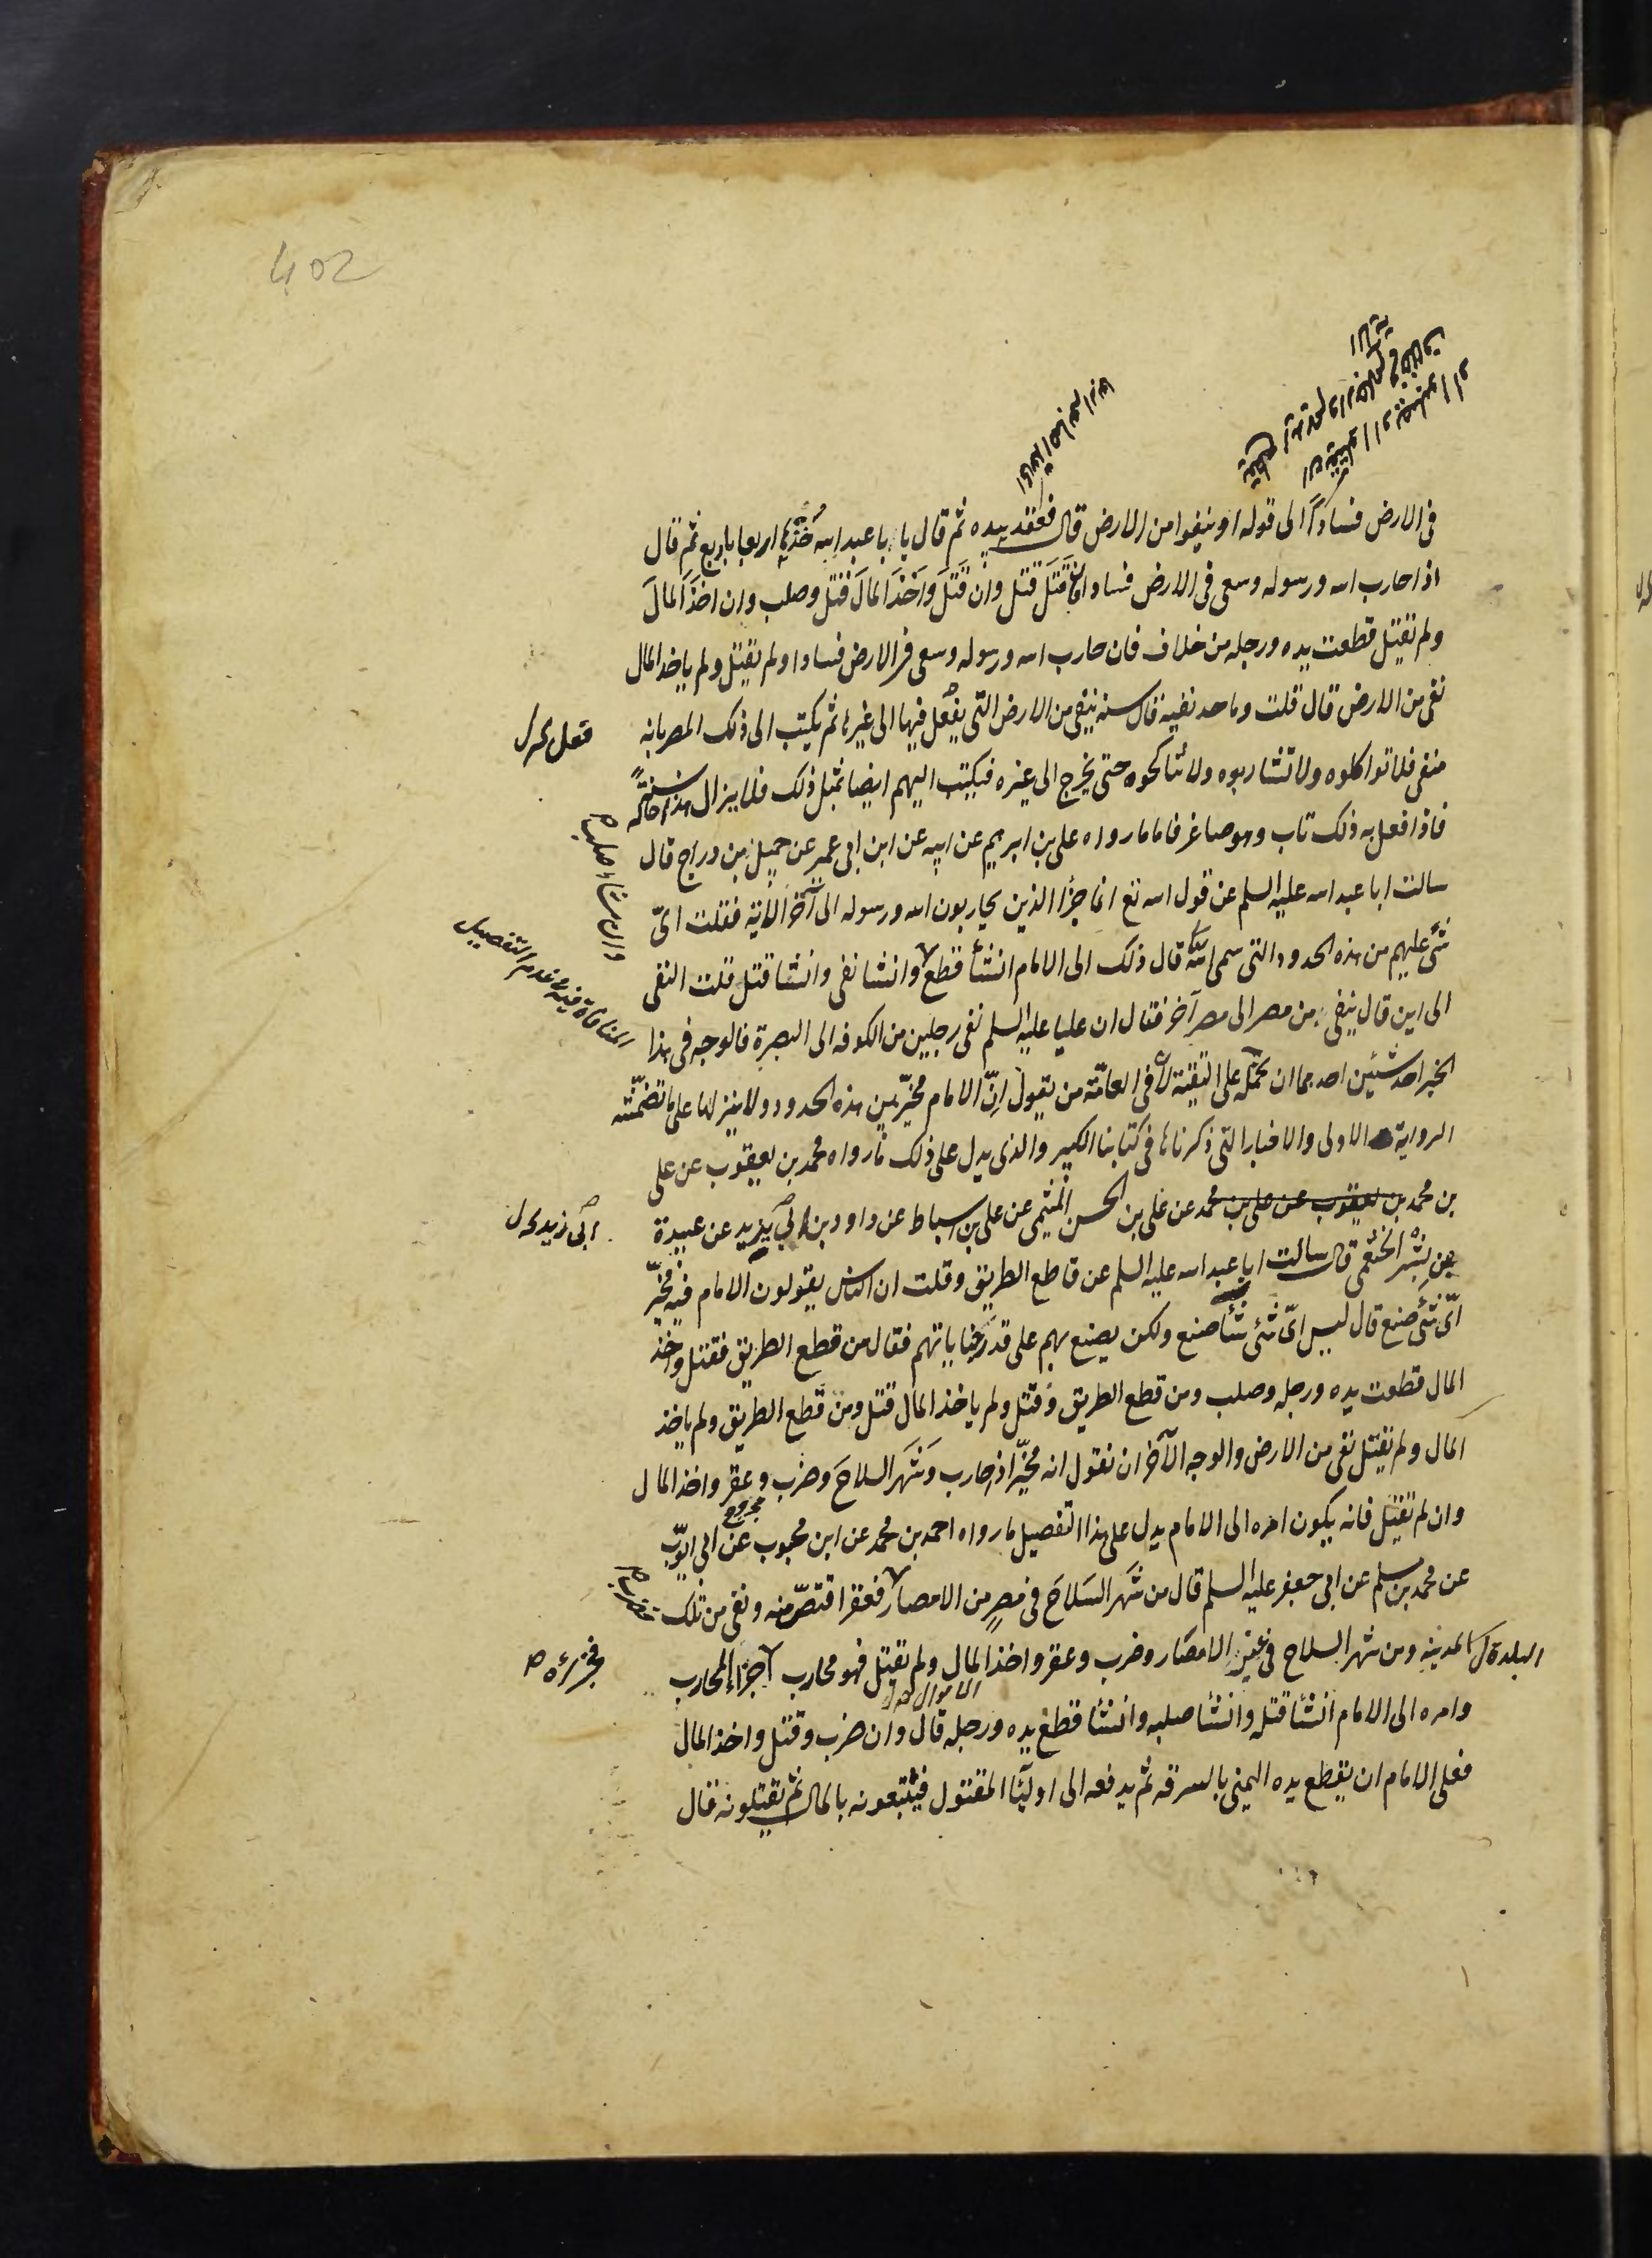 402
فى الارض فسادًا الى قوله او ينفوا من الارض قال فعقد بيده ثم قال يا با عبد الله خذها اربعا باربع ثم قال
اذا حارب الله ورسوله وسعى فى الارض فسادا فقتل قتل وان قتل واخذ المال قتل وصلب وان اخذ المال
ولم يقتل قطعت يده ورجله من خلاف فان حارب الله ورسوله وسعى فى الارض فسادا ولم يقتل ولم ياخذ المال
نفى من الارض قال قلت وما حد نفيه قال سنة ينفى من الارض التى يفعل فيها الى غيرها ثم يكتب الى ذلك المصر بانه
منفى فلا تواكلوه ولا تشاربوه ولا تناكحوه حتى يخرج الى غيره فيكتب اليهم ايضا بمثل ذلك فلا يزال هذه حاله سنة
فاذا فعل به ذلك تاب وهو صاغر فاما ما رواه على بن ابرهيم عن ابيه عن ابن ابى عمير عن جميل بن دراج قال
سالت ابا عبد الله عليه السلم عن قول الله تع انما جزا الذين يحاربون الله ورسوله الى آخر الاية فقلت اىّ
شئ عليهم من هذه الحدود التى سمى الله قال ذلك الى الامام انشأ قطع وانشا نفى وانشا قتل قلت النفى
الى اين قال ينفى من مصر الى مصر آخر فقال ان عليا عليه السلم نفى رجلين من الكوفه الى البصرة فالوجه فى هذا
الخبر احد شيئين احدهما ان نحمله على التقية لان فى العامّة من يقول انّ الامام مخيّر بين هذه الحدود ولا ينزلها على ما تضمّنته
الرواية الاولى والاخبار التى ذكرناها فى كتابنا الكبير والذى يدل على ذلك ما رواه محمد بن يعقوب عن على
بن محمد بن يعقوب عن على بن محمد عن على بن الحسن الميثمى عن على بن اسباط عن داود بن ابى يزيد عن عبيدة
بن بشر الخثعمى قال سالت ابا عبد الله عليه السلم عن قاطع الطريق وقلت ان الناس يقولون الامام فيه مخيّر
اىّ شئ صنع قال ليس اىّ شئ شأ صنع ولكن يصنع بهم على قدر جناياتهم فقال من قطع الطريق فقتل واخذ
المال قطعت يده ورجله وصلب ومن قطع الطريق وقتل ولم ياخذ المال قتل ومن قطع الطريق ولم ياخذ
المال ولم يقتل نفى من الارض والوجه الآخر ان نقول انه مخيّر اذا حارب وشهر السلاح وضرب وعقر واخذ المال
وان لم يقتل فانه يكون امره الى الامام يدل على هذا التفصيل ما رواه احمد بن محمد عن ابن محبوب عن ابى ايوّب
عن محمد بن مسلم عن ابى جعفر عليه السلم قال من شهر السلاح فى مصرٍ من الامصار فعقر اقتصّ منه ونفى من تلك
البلدة ل المدينه ومن شهر السلاح فى غير الامصار وضرب وعقر واخذ المال ولم يقتل فهو محارب جزاء المحارب
وامره الى الامام انشأ قتله وانشأ صلبه وانشأ قطع يده ورجله قال وان ضرب وقتل واخذ المال
فعلى الامام ان يقطع يده اليمنى بالسرقه ثم يدفعه الى اوليّا المقتول فيتبعونه بالمال ثم يقتلونه قال
وان شاء صلب
المنافاة فيه عدم التفصيل
ابى زيد
فجزاؤه
الاموال